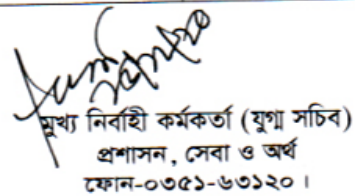 মুখ্য নির্বাহী কর্মকর্তা (যুগ্ম সচিব)
প্রশাসন, সেবা ও অর্থ
ফোন-০৩৫১-৬৩১২০।